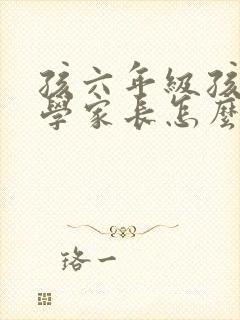 孩六年級孩
學家長怎麼
珞一